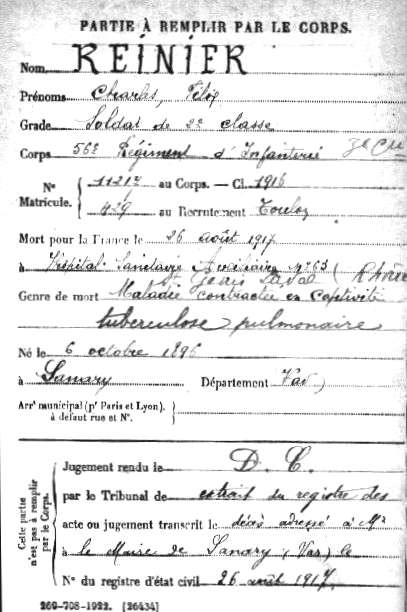 PARTIE À REMPLIR PAR LE CORPS.
Nom REINIER
Prénoms Charles, Félix
Grade Soldat de 2e classe
Corps 56e Régiment d'Infanterie 7e Cie
No Matricule. { 11217 au Corps. — Cl. 1916
429 au Recrutement Toulon
Mort pour la France le 26 août 1917
à Hôpital Sanitaire Auxiliaire no 63
St Genis Laval (Rhône)
Genre de mort Maladie contractée en Captivité
tuberculose pulmonaire
Né le 6 octobre 1896
à Sanary Département Var
Arrt municipal (pr Paris et Lyon), à défaut rue et No. {
Cette partie n'est pas à remplir par le Corps.
Jugement rendu le D. C.
par le Tribunal de extrait du registre des
acte ou jugement transcrit le décès adressé à Mr
à le Maire de Sanary (Var) le
No du registre d'état civil 26 août 1917.
269-708-1922. [26434]